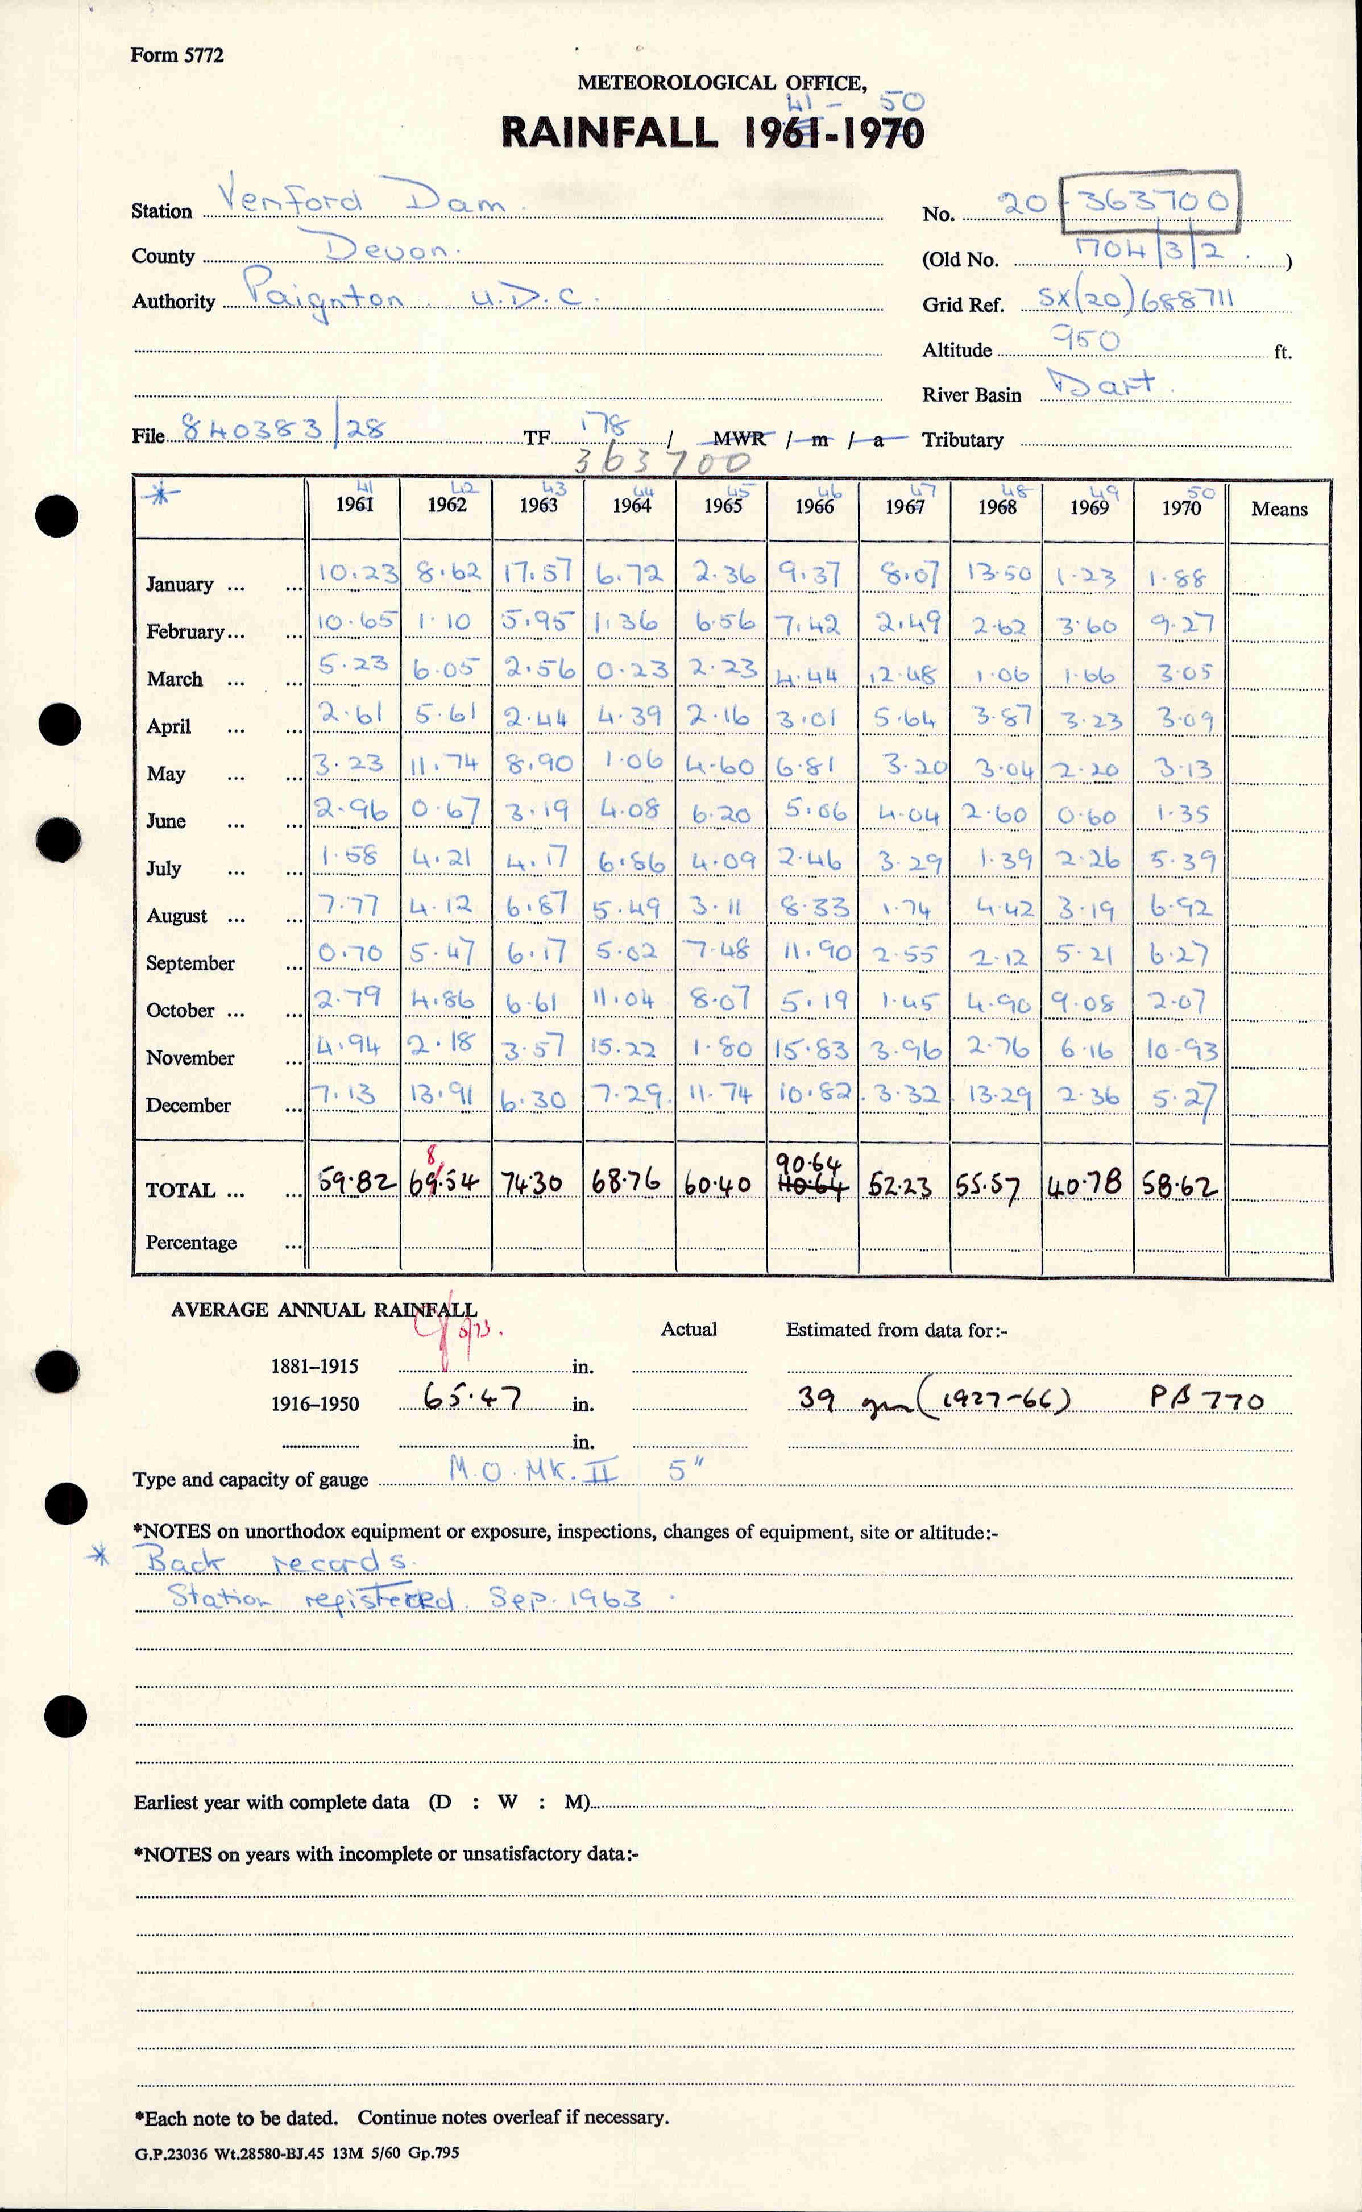 Form 5772
METEOROLOGICAL OFFICE,
41 - 50
RAINFALL 1961-1970
Station Venford Dam No. 20 363700
County Devon. (Old No. 1704/3/2. )
Authority Paignton U.D.C. Grid Ref. SX(20)688711
Altitude 950 ft.
River Basin Dart.
File 840383/28 TF 178 / MWR / m / a Tributary
363700
* 41 42 43 44 45 46 47 48 49 50
1961 1962 1963 1964 1965 1966 1967 1968 1969 1970 Means
January ... ... 10.23 8.62 17.57 6.72 2.36 9.37 8.07 13.50 1.23 1.88
February... ... 10.65 1.10 5.95 1.36 6.56 7.42 2.49 2.62 3.60 9.27
March ... ... 5.23 6.05 2.56 0.23 2.23 4.44 12.48 1.06 1.66 3.05
April ... ... 2.61 5.61 2.44 4.39 2.16 3.01 5.64 3.87 3.23 3.09
May ... ... 3.23 11.74 8.90 1.06 4.60 6.81 3.20 3.04 2.20 3.13
June ... ... 2.96 0.67 3.19 4.08 6.20 5.06 4.04 2.60 0.60 1.35
July ... ... 1.58 4.21 4.17 6.86 4.09 2.46 3.29 1.39 2.26 5.39
August ... ... 7.77 4.12 6.87 5.49 3.11 8.33 1.74 4.42 3.19 6.92
September ... 0.70 5.47 6.17 5.02 7.48 11.90 2.55 2.12 5.21 6.27
October ... ... 2.79 4.86 6.61 11.04 8.07 5.19 1.45 4.90 9.08 2.07
November ... 4.94 2.18 3.57 15.22 1.80 15.83 3.96 2.76 6.16 10.93
December ... 7.13 13.91 6.30 7.29 11.74 10.82 3.32 13.29 2.36 5.27
8 90.64
TOTAL ... ... 59.82 69.54 74.30 68.76 60.40 40.64 52.23 55.57 40.78 58.62
Percentage ...
AVERAGE ANNUAL RAINFALL
5/73.
Actual Estimated from data for:-
1881–1915 in.
1916–1950 65.47 in. 39 gm (1927-66) PB 770
in.
Type and capacity of gauge M.O. MK. II 5"
*NOTES on unorthodox equipment or exposure, inspections, changes of equipment, site or altitude:-
* Back records.
Station registered. Sep. 1963.
Earliest year with complete data (D : W : M)
*NOTES on years with incomplete or unsatisfactory data:-
*Each note to be dated. Continue notes overleaf if necessary.
G.P.23036 Wt.28580-BJ.45 13M 5/60 Gp.795